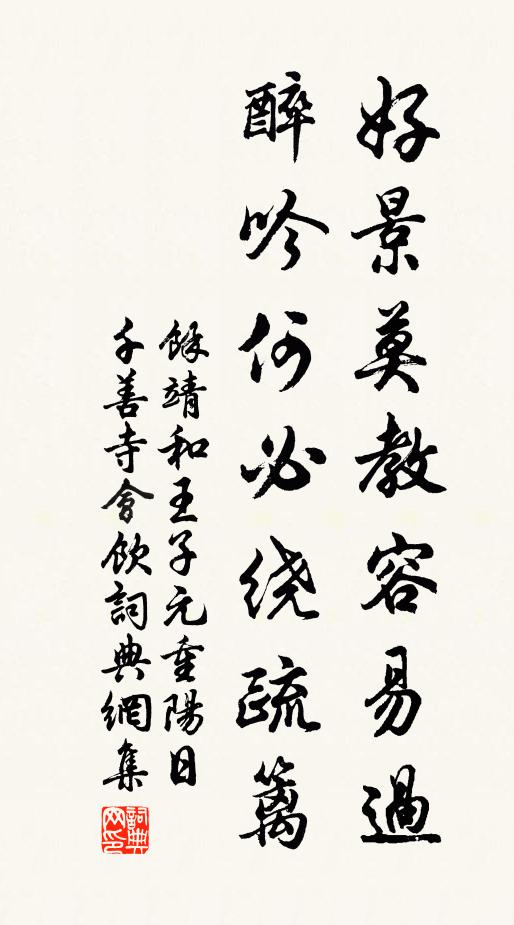 好景莫教容易過
醉吟何必绕疏篱
餘靖和王子元重陽日
千善寺會飲詞典網集
詞典網印